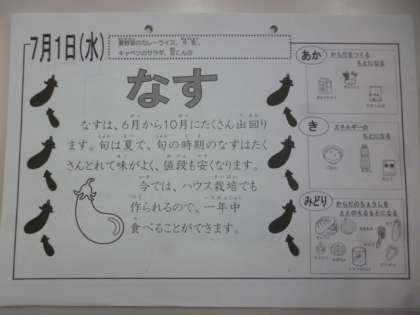 7月1日(水)
夏野菜のカレーライス、牛乳、
キャベツのサラダ、
なす
なすは、6月から10月にたくさん出回り
ます。旬は夏で、旬の時期のなすはたく
さんとれて味がよく、値段も安くなります。
今では、ハウス栽培でも
作られるので、一年中
食べることができます。
あか
からだをつくる
もとになる
き
エネルギーの
もとになる
みどり
からだのちょうしを
ととのえるもとになる